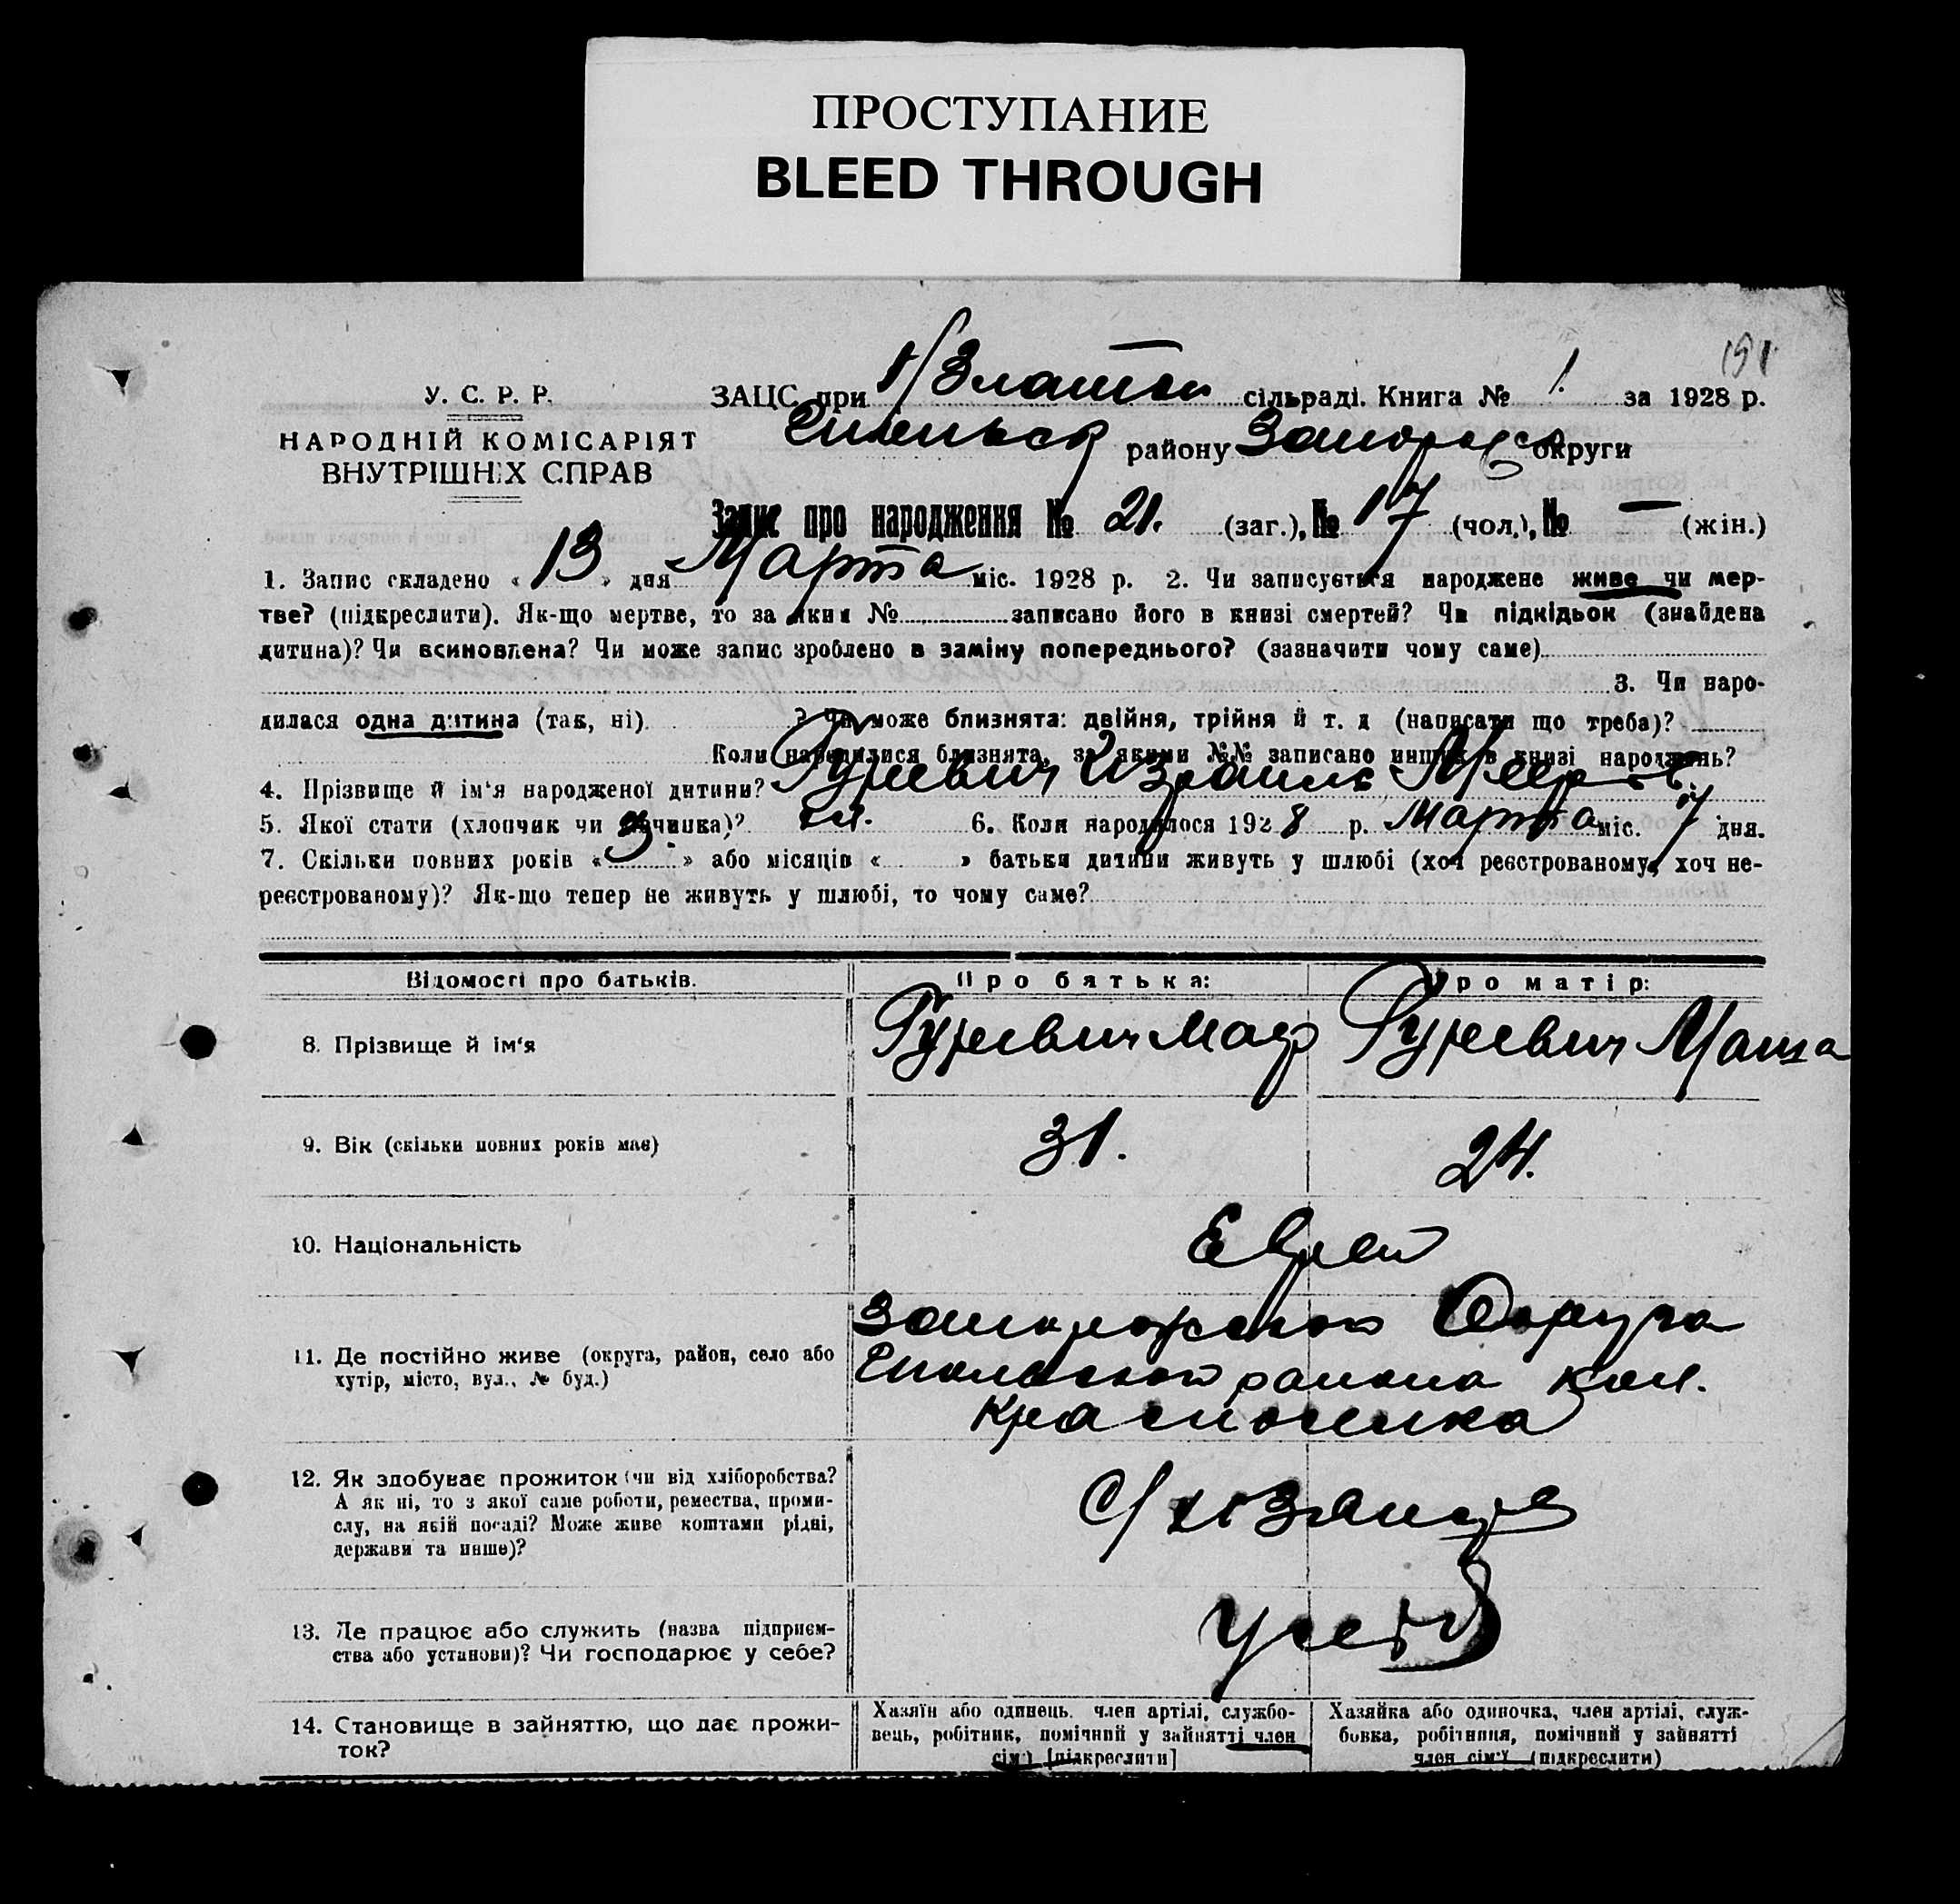 ПРОСТУПАНИЕ
BLEED THROUGH
191
У. С. Р. Р.
НАРОДНІЙ КОМІСАРІЯТ
ВНУТРІШНІХ СПРАВ
ЗАЦС при сільраді. Книга № 1. за 1928 р.
району округи
Запис про народження № 21. (заг.), № 17 (чол.), № — (жін.)
1. Запис складено « 13 » дня Марта міс. 1928 р. 2. Чи записується народжене живе чи мер-
тве? (підкреслити). Як-що мертве, то за яким № записано його в книзі смертей? Чи підкідьок (знайдена
дитина)? Чи всиновлена? Чи може запис зроблено в заміну попереднього? (зазначити чому саме)
3. Чи наро-
дилася одна дитина (так, ні) ? Чи може близнята: двійня, трійня й т. д (написати що треба)?
Коли народилися близнята, за якими №№ записано инших в книзі народжень?
4. Прізвище й ім'я народженої дитини? Гуревич Израиль
5. Якої стати (хлопчик чи дівчинка)? 6. Коли народилося 1928 р. Марта міс. 7 дня.
7. Скільки повних років « 3. » або місяців « » батьки дитини живуть у шлюбі (хоч реєстрованому, хоч не-
реєстрованому)? Як-що тепер не живуть у шлюбі, то чому саме?
Відомості про батьків. Про батька: Про матір:
8. Прізвище й ім'я Гуревич Гуревич Маша
9. Вік (скільки повних років має) 31. 24.
10. Національність Еврей
11. Де постійно живе (округа, район, село або
хутір, місто, вул., № буд.)
Округа
района кол.
12. Як здобуває прожиток (чи від хліборобства?
А як ні, то з якої саме роботи, ремества, проми-
слу, на якій посаді? Може живе коштами рідні,
держави та инше)?
13. Де працює або служить (назва підприєм-
ства або установи)? Чи господарює у себе?
14. Становище в зайняттю, що дає прожи-
ток?
Хазяїн або одинець, член артілі, службо-
вець, робітник, помічний у зайнятті член
сім'ї [підкреслити]
Хазяйка або одиночка, член артілі, служ-
бовка, робітниця, помічний у зайнятті
член сім'ї (підкреслити)